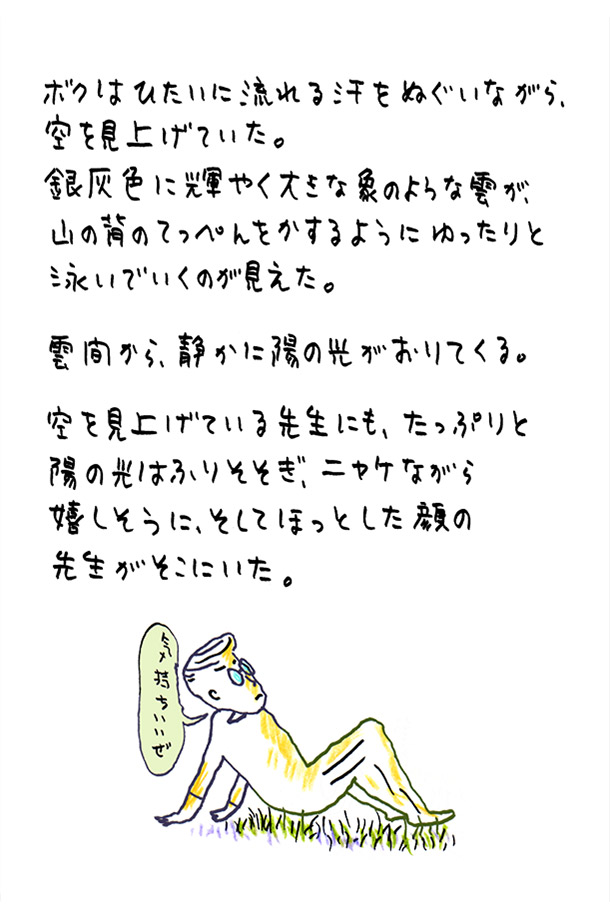 ボクはひたいに流れる汗をぬぐいながら、
空を見上げていた。
銀灰色に輝やく大きな象のような雲が、
山の背のてっぺんをかするようにゆったりと
泳いでいくのが見えた。
雲間から、静かに陽の光がおりてくる。
空を見上げている先生にも、たっぷりと
陽の光はふりそそぎ、ニヤケながら
嬉しそうに、そしてほっとした顔の
先生がそこにいた。
気持ちいいぜ